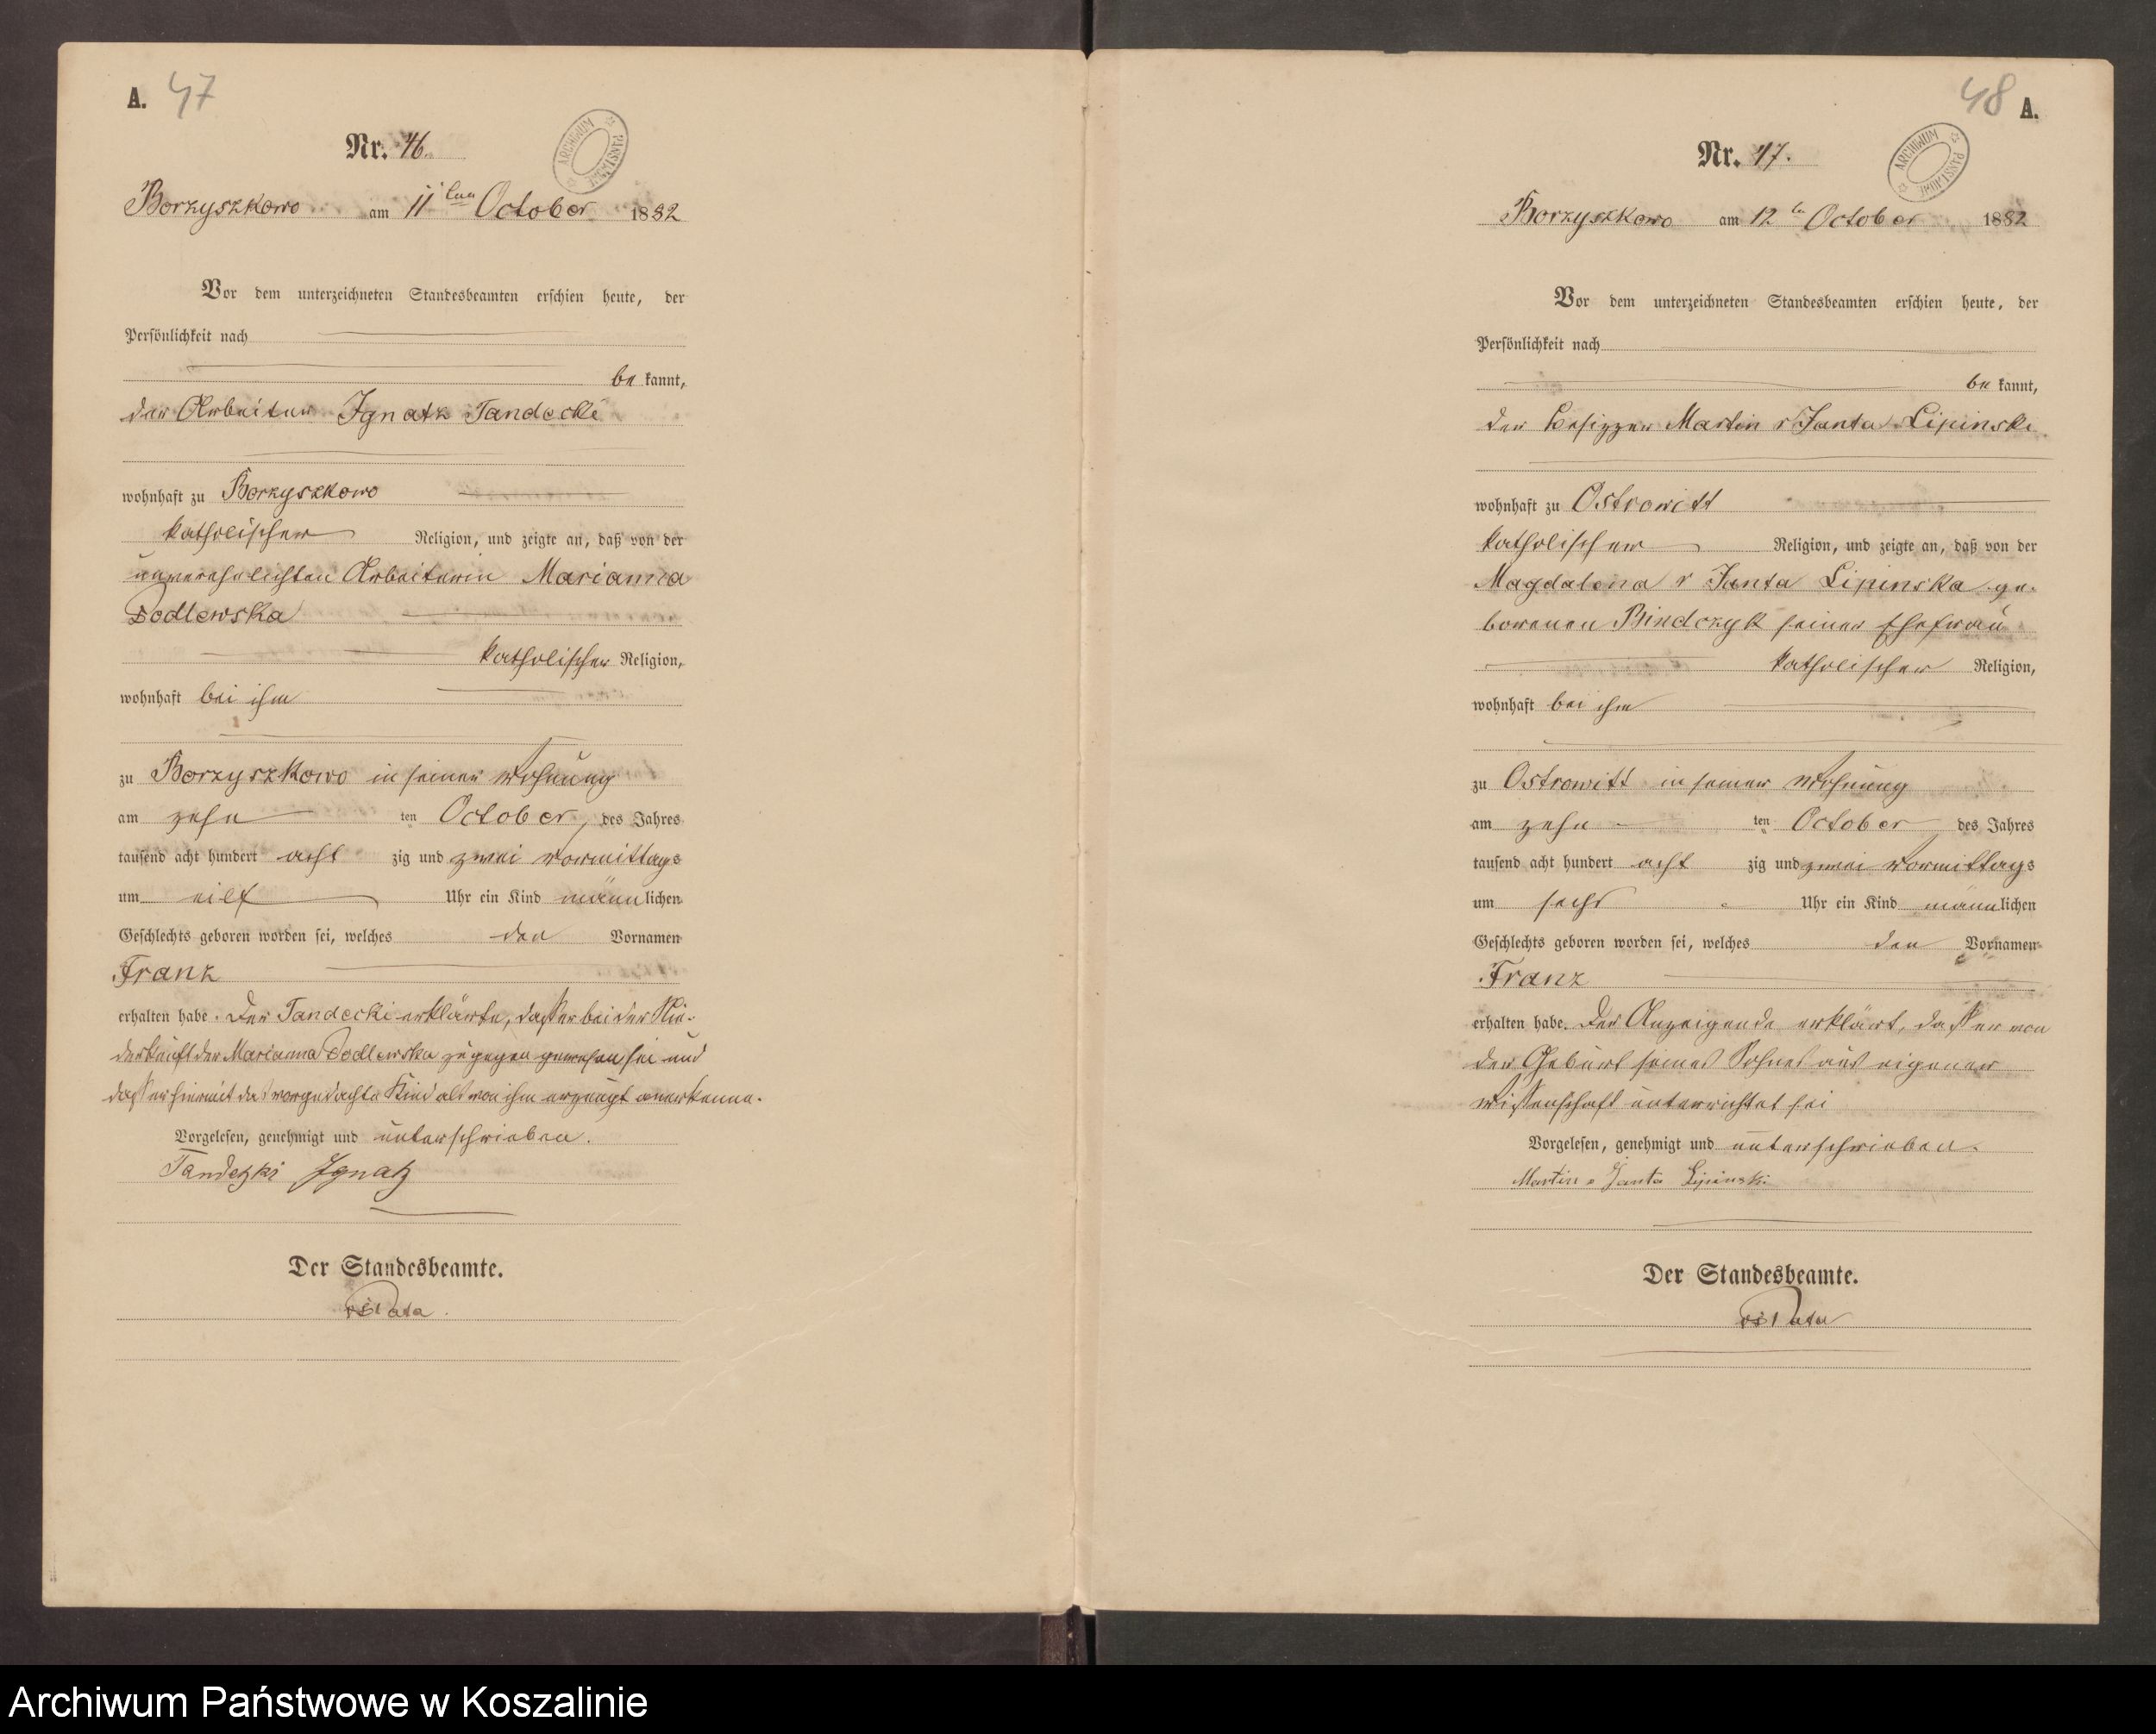 A. 47
Nr. 46.
ARCHIWUM PAŃSTWOWE
Borzyszkowo am 11ten October 1882
Vor dem unterzeichneten Standesbeamten erschien heute, der
Persönlichkeit nach
be kannt,
der Arbeiter Ignatz Tandecki
wohnhaft zu Borzyszkowo
katholischer Religion, und zeigte an, daß von der
unverehelichten Arbeiterin Marianna
Podlewska
katholischer Religion,
wohnhaft bei ihm
zu Borzyszkowo in seiner Wohnung
am zehn ten October, des Jahres
tausend acht hundert acht zig und zwei Vormittags
um eilf Uhr ein Kind männlichen
Geschlechts geboren worden sei, welches den Vornamen
Franz
erhalten habe. Der Tandecki erklärte, daß er bei der Nie-
derkunft der Marianna Podlewska zugegen gewesen sei und
daß er hiermit das vorgedachte Kind als von ihm erzeugt anerkenne.
Vorgelesen, genehmigt und unterschrieben.
Tandetzki Ignatz
Der Standesbeamte.
48 A.
Nr. 47.
ARCHIWUM PAŃSTWOWE
Borzyszkowo am 12ten October 1882
Vor dem unterzeichneten Standesbeamten erschien heute, der
Persönlichkeit nach
be kannt,
der Besitzer Martin v Janta Lipinski
wohnhaft zu Ostrowitt
katholischer Religion, und zeigte an, daß von der
Magdalena v Janta Lipinska ge-
borenen Bindczyk seiner Ehefrau
katholischer Religion,
wohnhaft bei ihm
zu Ostrowitt in seiner Wohnung
am zehn ten October des Jahres
tausend acht hundert acht zig und zwei Vormittags
um sechs Uhr ein Kind männlichen
Geschlechts geboren worden sei, welches den Vornamen
Franz
erhalten habe. Der Anzeigende erklärt, daß er von
der Geburt seines Sohnes aus eigener
Wissenschaft unterrichtet sei
Vorgelesen, genehmigt und unterschrieben.
Martin v Janta Lipinski
Der Standesbeamte.
Archiwum Państwowe w Koszalinie